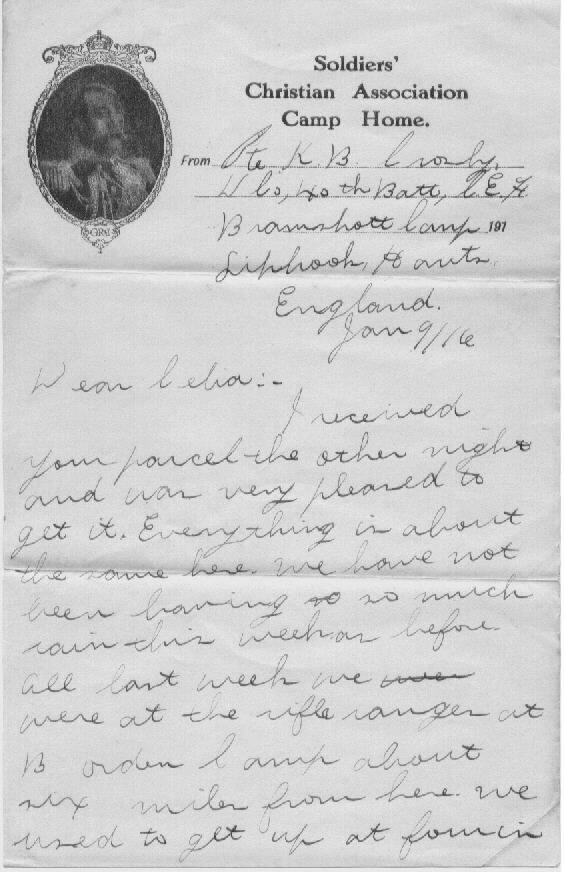 Soldiers'
Christian Association
Camp Home.
From Pte K. B. Crosby.
D Co, 40th Batt, C.E.F
Bramshott Camp 191
Liphook, Hants.
England.
Jan 9/16
Dear Celia:-
I received
your parcel the other night
and was very pleased to
get it. Everything is about
the same here. we have not
been having so so much
rain this week as before.
All last week we were
were at the rifle ranges at
Borden Camp about
six miles from here. we
used to get up at four in
GRV